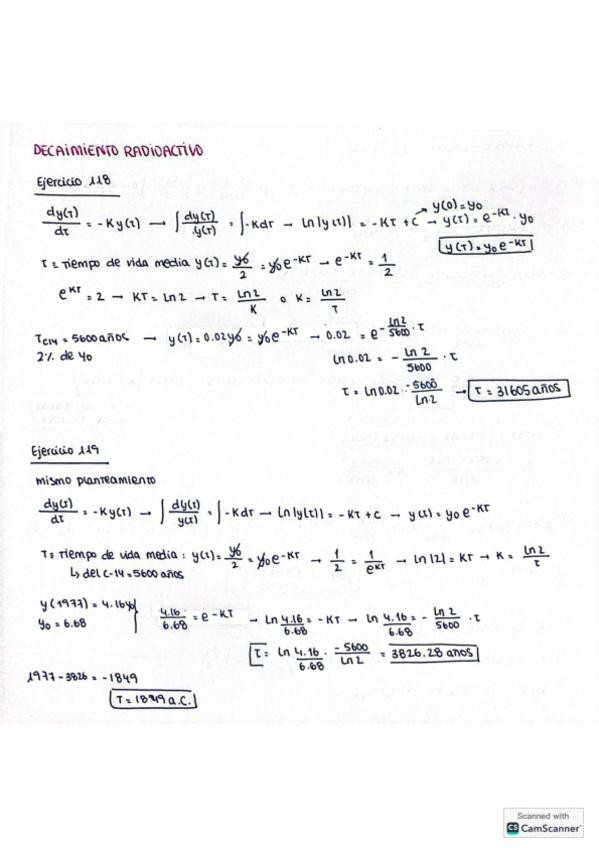 DECAIMIENTO RADIOACTIVO
Ejercicio 118
dy(τ)/dτ = -Ky(τ) → ∫ dy(τ)/y(τ) = ∫ -Kdτ → Ln|y(τ)| = -Kτ + C → y(τ) = e^-Kτ · y0
y(0) = y0
y(τ) = y0 e^-Kτ
T = Tiempo de vida media y(τ) = y0/2 = y0 e^-KT → e^-KT = 1/2
e^KT = 2 → KT = Ln 2 → T = Ln 2/K o K = Ln 2/T
TC14 = 5600 años → y(τ) = 0.02y0 = y0 e^-Kτ → 0.02 = e^-(Ln 2/5600)·τ
2% de y0
Ln 0.02 = - Ln 2/5600 · τ
τ = Ln 0.02 · -5600/Ln 2 → τ = 31605 años
Ejercicio 119
mismo planteamiento
dy(τ)/dτ = -Ky(τ) → ∫ dy(τ)/y(τ) = ∫ -Kdτ → Ln|y(τ)| = -Kτ + C → y(τ) = y0 e^-Kτ
T = Tiempo de vida media : y(τ) = y0/2 = y0 e^-KT → 1/2 = 1/e^KT → Ln|2| = KT → K = Ln 2/τ
↳ del C-14 = 5600 años
y(1977) = 4.16y0
y0 = 6.68
4.16/6.68 = e^-Kτ → Ln 4.16/6.68 = -Kτ → Ln 4.16/6.68 = - Ln 2/5600 · τ
τ = Ln 4.16/6.68 · -5600/Ln 2 = 3826.28 años
1977 - 3826 = -1849
T = 1849 a.C.
Scanned with
CS CamScanner